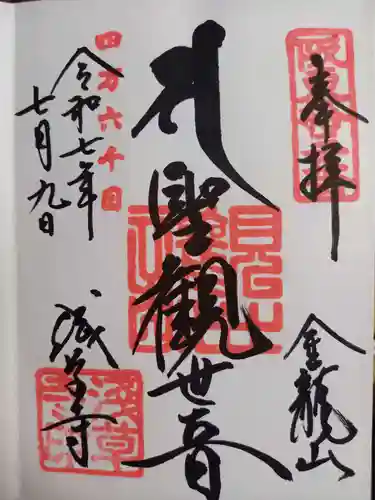 奉拝
金龍山
聖観世音
四万六千日
令和七年
七月九日
浅草寺